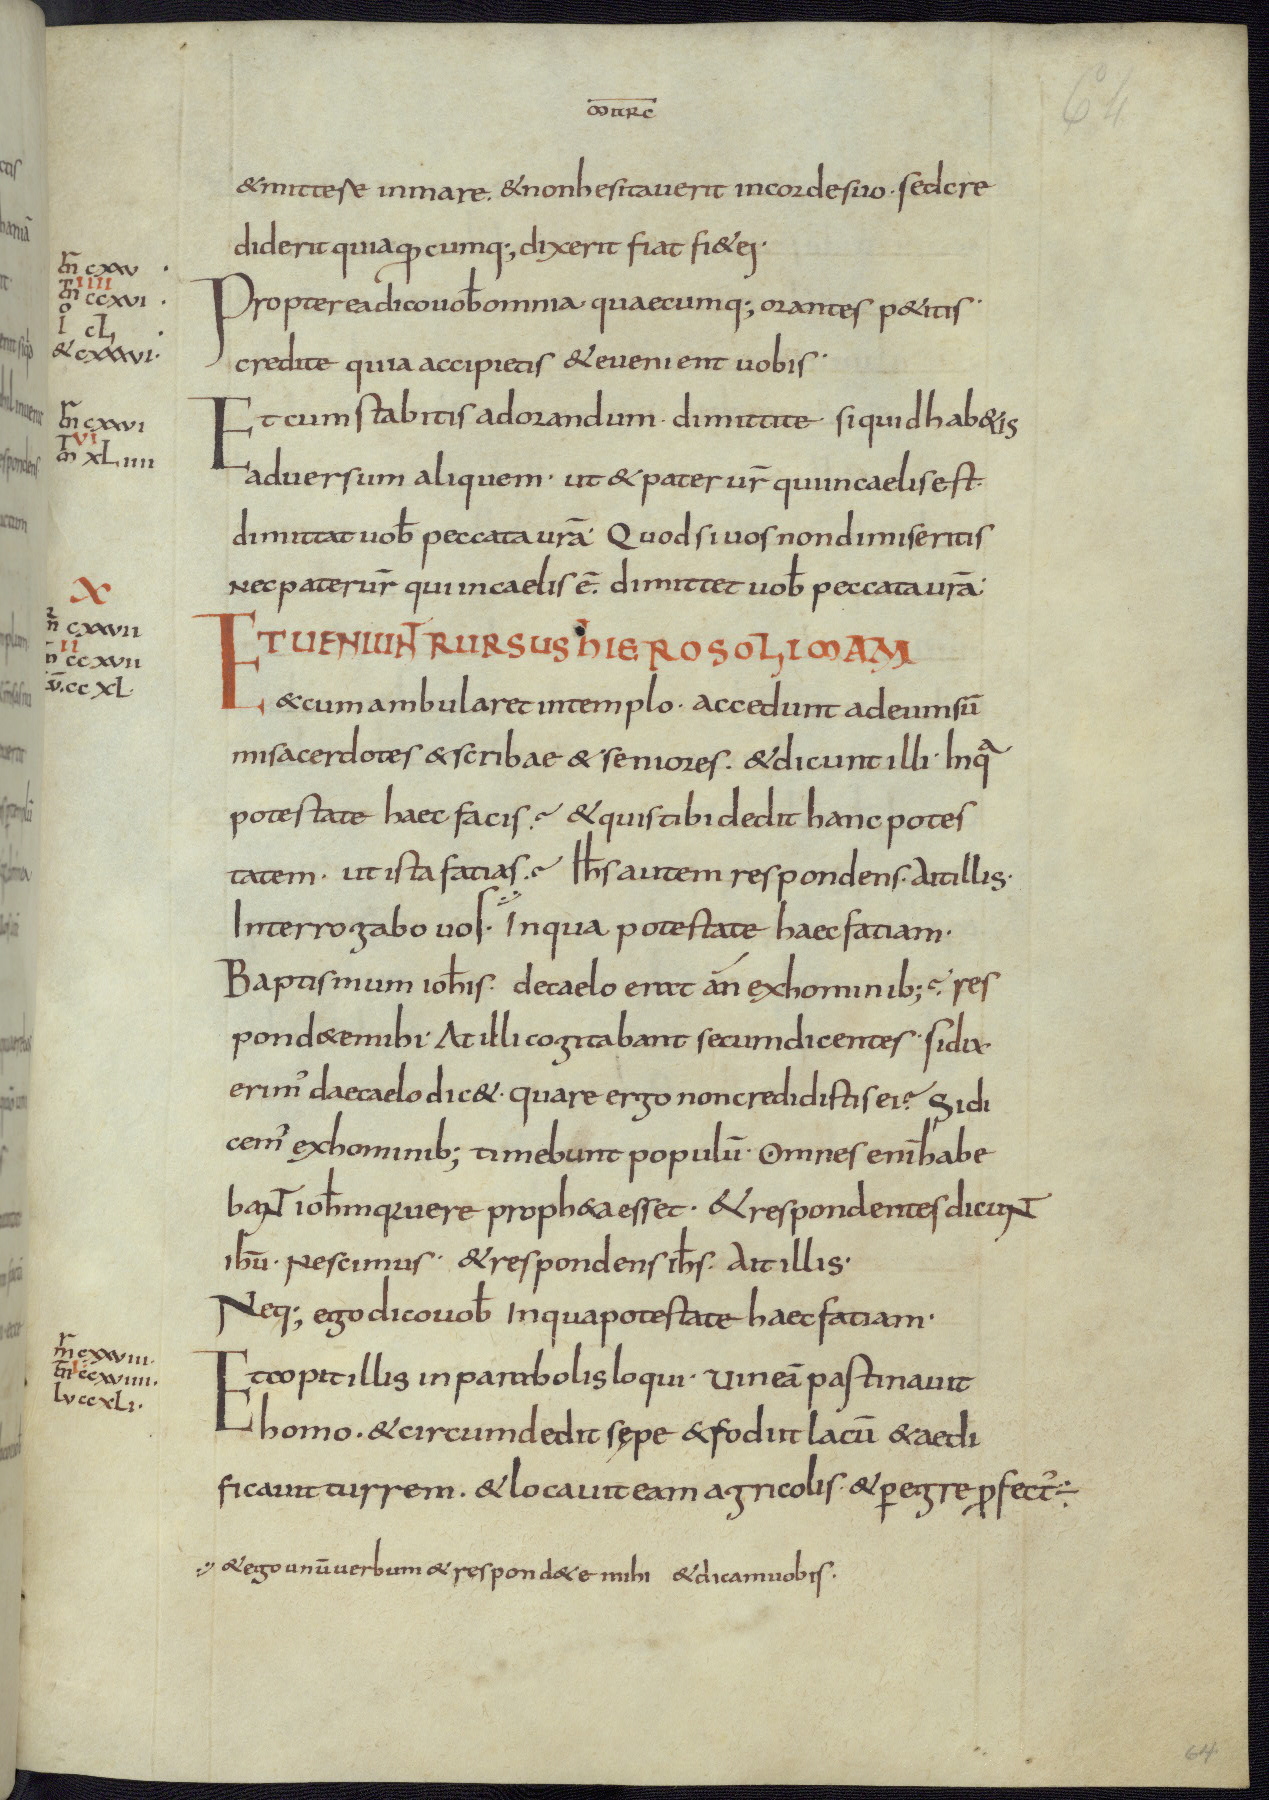 MARC
64
& mittere in mare. & non hesitauerit in corde suo. sed cre
diderit quia qđcumq; dixerit fiat fi&ei.
Propterea dico uob̄ omnia quaecumq; orantes p&itis.
credite quia accipietis & euenient uobis.
mr̄ cxxv
IIII
mt̄ ccxvi
io cL
& cxxxvi.
Et cum stabitis ad orandum. dimittite si quid hab&is
aduersum aliquem. ut & pater ur̄ qui in caelis est.
dimittat uob̄ peccata urā. Quod si uos non dimiseritis
nec pater ur̄ qui in caelis ē. dimittet uob̄ peccata urā.
mr̄ cxxvi
VI
mt̄ xLiiii
X
ET UENIUNT RURSUS HIEROSOLIMAM
& cum ambularet in templo. accedunt ad eum sū
mi sacerdotes & scribae & seniores. & dicunt illi. In qa
potestate haec facis.? & quis tibi dedit hanc potes
tatem. ut ista fatias.? Ihs̄ autem respondens. Ait illis.
Interrogabo uos. In qua potestate haec fatiam.
Baptismum ioh̄is. de caelo erat an ex hominib;? res
pond&e mihi. At illi cogitabant secum dicentes. si dix
erim' dae caelo dic&. quare ergo non credidistis ei? Si di
cem' ex hominib; timebunt populū. Omnes enī habe
bant ioh̄m q uere proph&a esset. & respondentes dicunt
ihū. Nescimus. & respondens ihs̄. Ait illis.
Neq; ego dico uob̄ In qua potestate haec fatiam.
mr̄ cxxvii
II
mt̄ ccxvii
lū. ccxL.
Et coepit illis in parabolis loqui. Uineā pastinauit
homo. & circumdedit sępe & fodiit lacū & aedi
ficauit turrem. & locauit eam agricolis. & peregre profect'
mr̄ cxxviii.
mt̄ ccxviiii.
lu ccxLi.
& ego unū uerbum & respond&e mihi & dicam uobis.
64